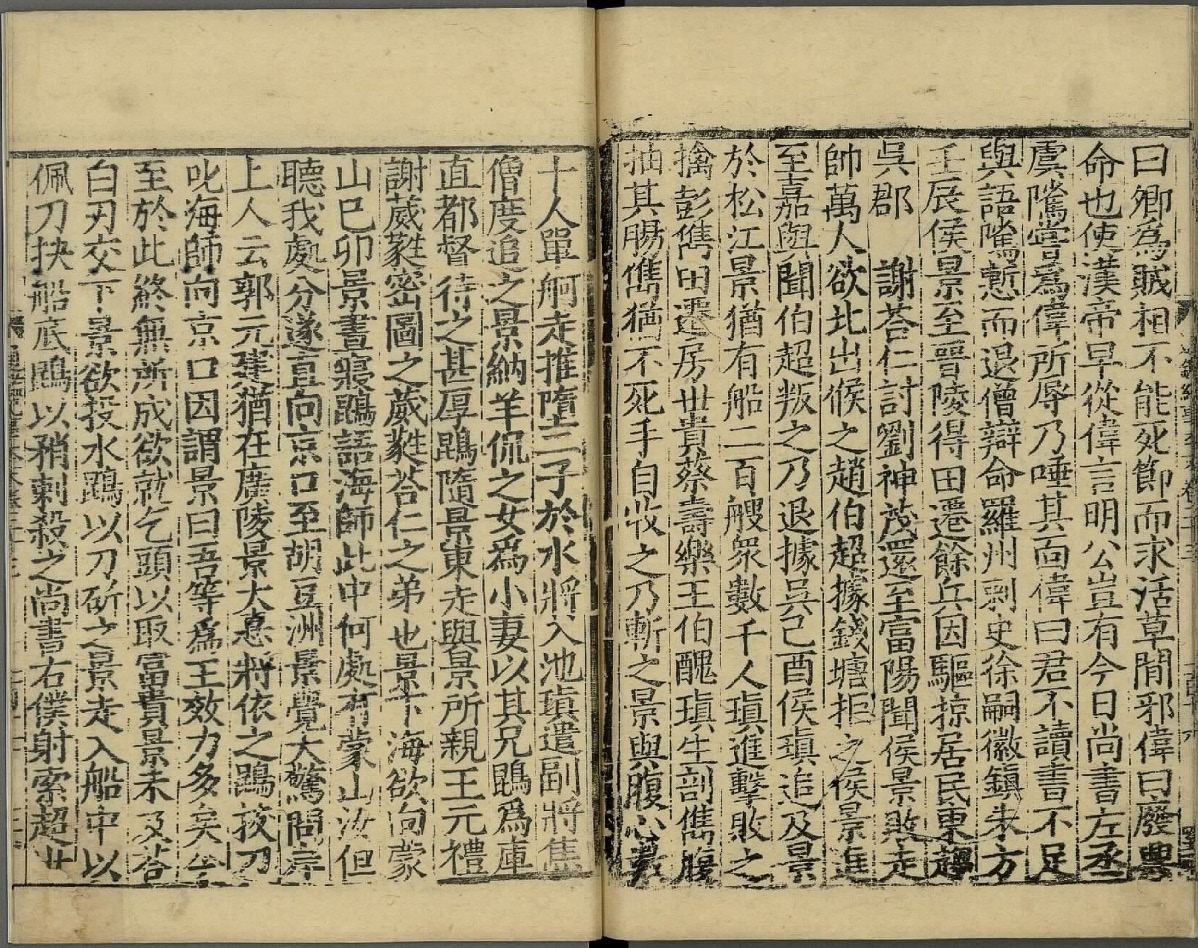 曰卿爲賊相不能死節而求活草閒邪偉曰廢興
命也使漢帝早從偉言明公豈有今日尚書左丞
虞隲嘗爲偉所辱乃唾其面偉曰君不讀書不足
與語隲慙而退僧辯命羅州刺史徐嗣徽鎮朱方
壬辰侯景至晉陵得田遷餘兵因驅掠居民東趨
吳郡 謝荅仁討劉神茂還至富陽聞侯景敗走
帥萬人欲北出候之趙伯超據錢塘拒之侯景進
至嘉興聞伯超叛之乃退據吳己酉侯瑱追及景
於松江景猶有船二百艘衆數千人瑱進擊敗之
擒彭儁田遷房世貴蔡壽樂王伯醜瑱生剖儁腹
抽其腸儁猶不死手自收之乃斬之景與腹心數
十人單舸走推墮二子於水將入海瑱遣副將焦
僧度追之景納羊侃之女爲小妻以其兄鵾爲庫
直都督待之甚厚鵾隨景東走與景所親王元禮
謝葳蕤密圖之葳蕤荅仁之弟也景下海欲向蒙
山己卯景晝寢鵾語海師此中何處有蒙山汝但
聽我處分遂直向京口至胡豆洲景覺大驚問岸
上人云郭元建猶在廣陵景大喜將依之鵾拔刀
叱海師向京口因謂景曰吾等爲王效力多矣今
至於此終無所成欲就乞頭以取富貴景未及荅
白刃交下景欲投水鵾以刀斫之景走入船中以
佩刀抉船底鵾以矟刺殺之尚書右僕射索超世